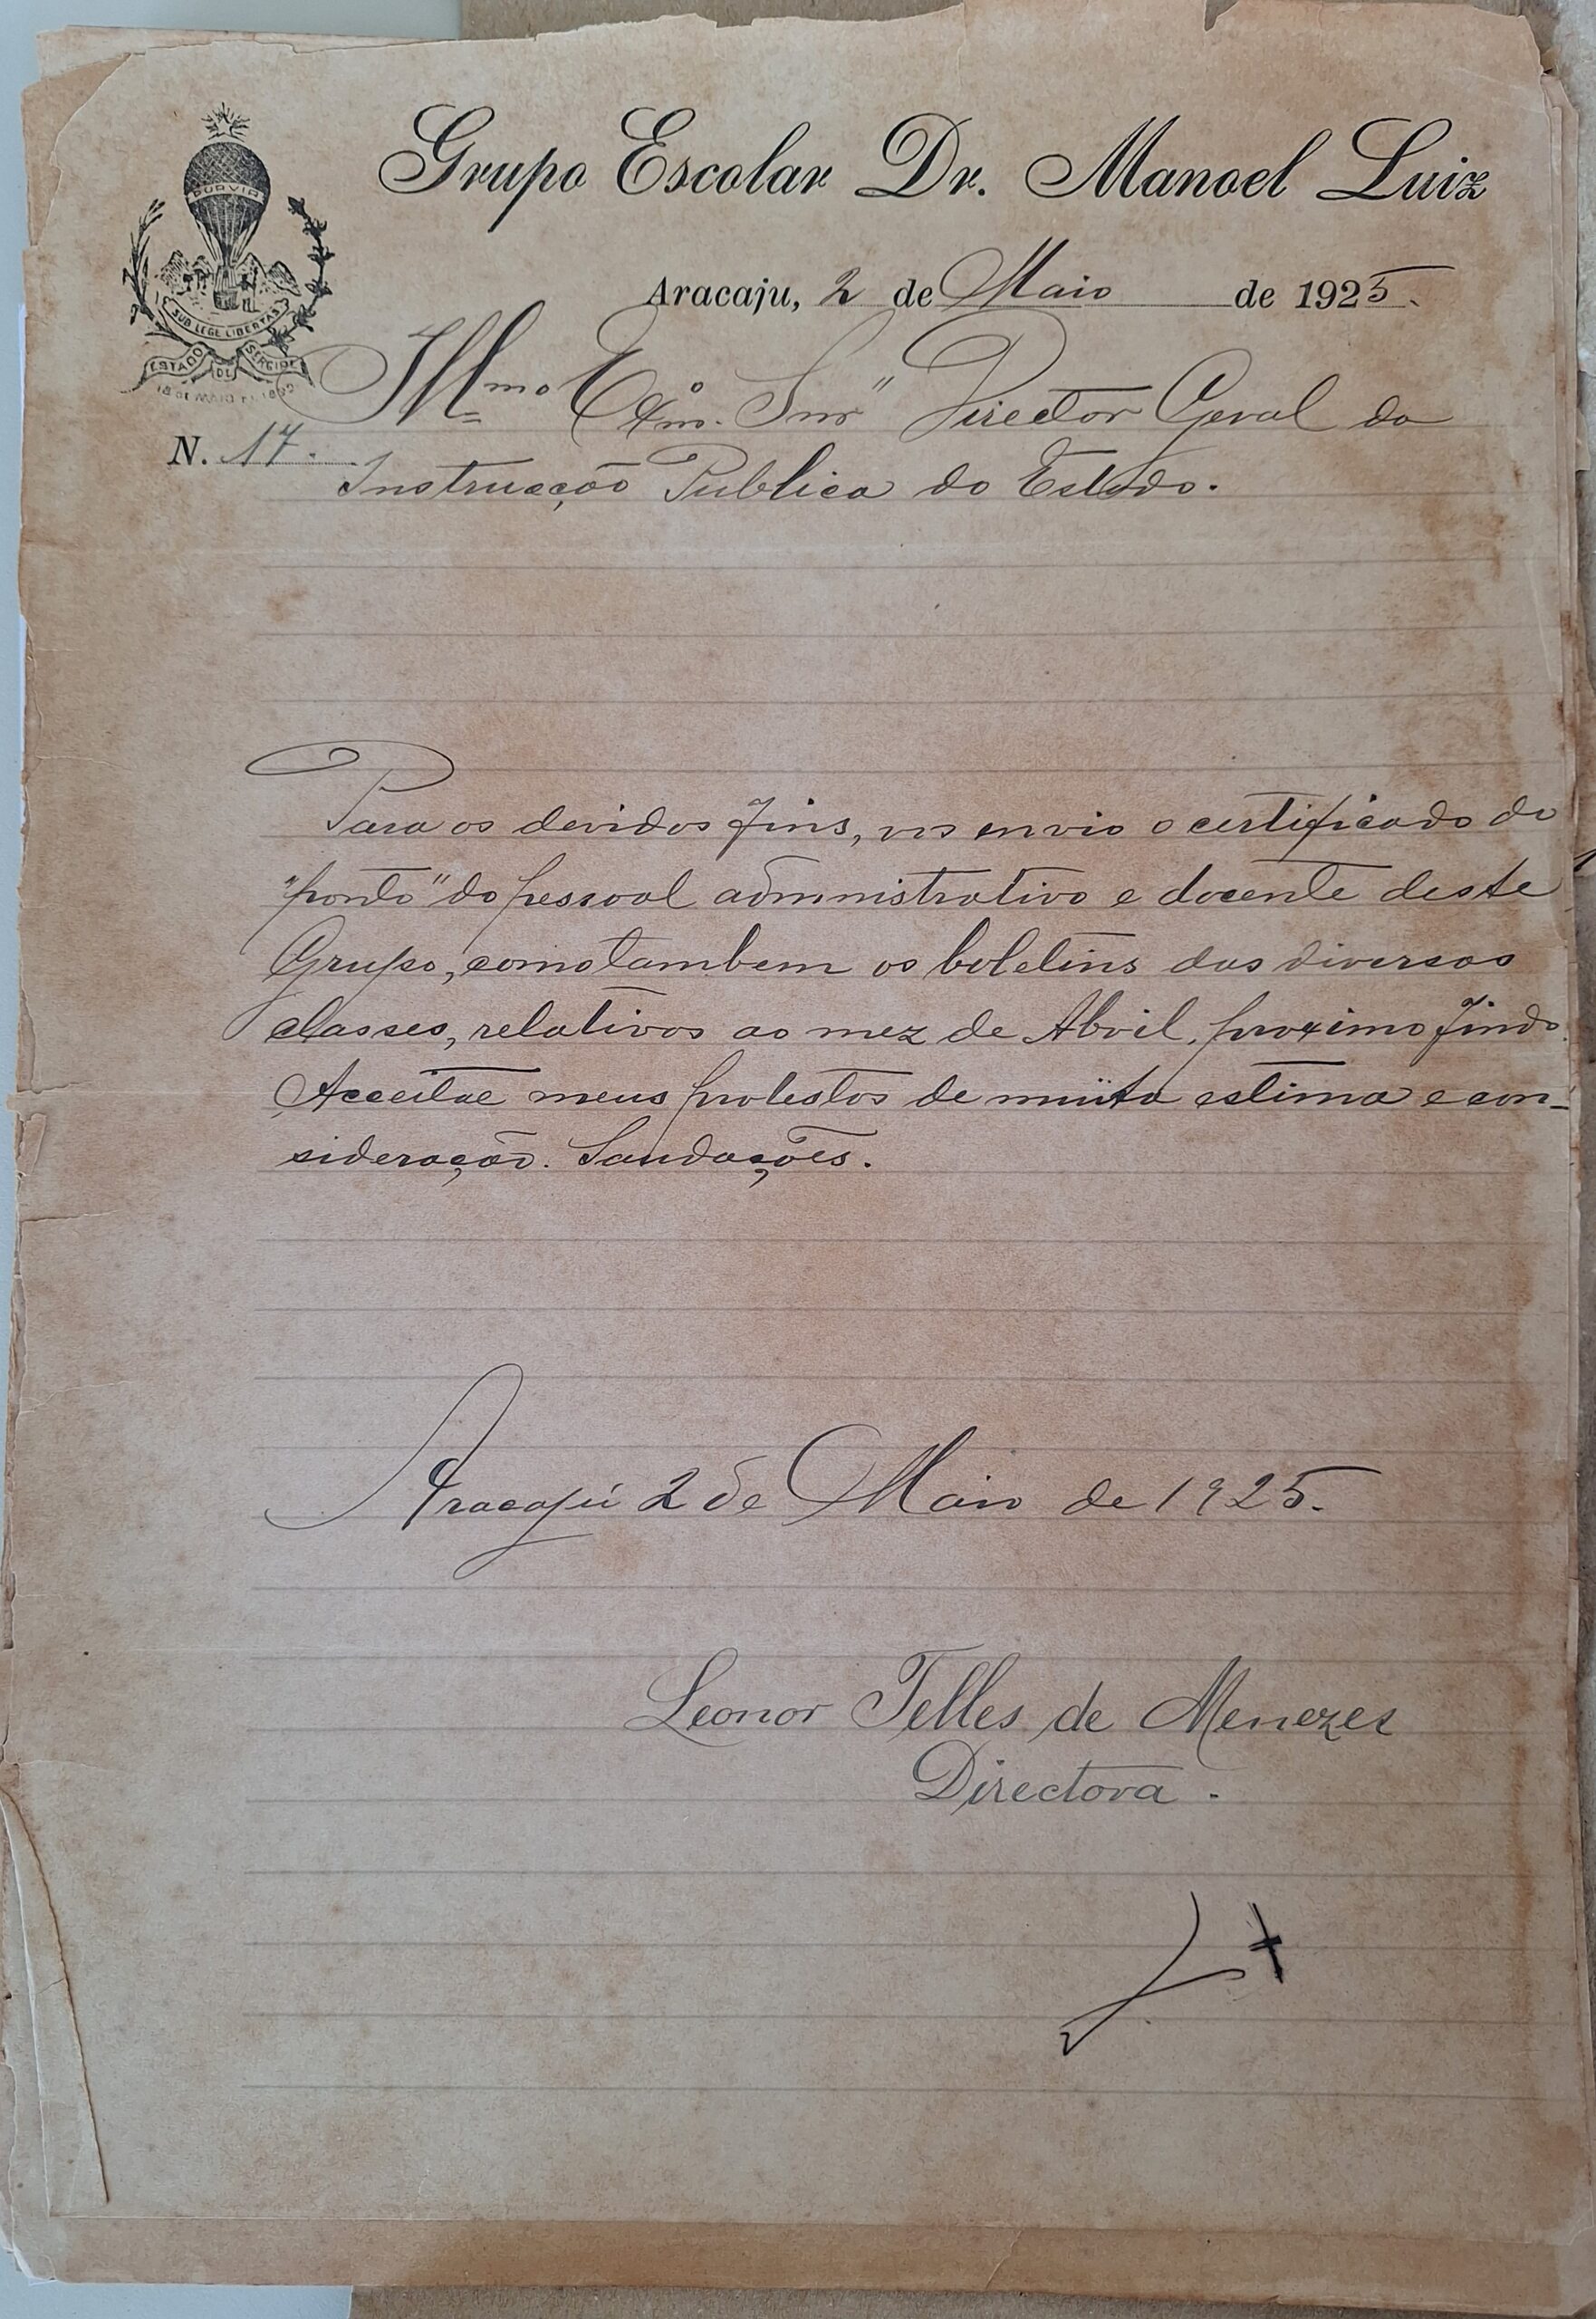 Grupo Escolar Dr. Manoel Luiz
PORVIR
SUB LEGE LIBERTAS
ESTADO DE SERGIPE
18 DE MAIO DE 1892
Aracaju, 2 de Maio de 1925.
Illmo Exmo. Snr Director Geral da
N. 17.
Instrucção Publica do Estado.
Para os devidos fins, vos envio o certificado do
"ponto" do pessoal administrativo e docente deste
Grupo, como tambem os boletins das diversas
classes, relativos ao mez de Abril, proximo findo.
Acceitae meus protestos de muita estima e con-
sideração. Saudações.
Aracajú 2 de Maio de 1925.
Leonor Telles de Menezes
Directora.